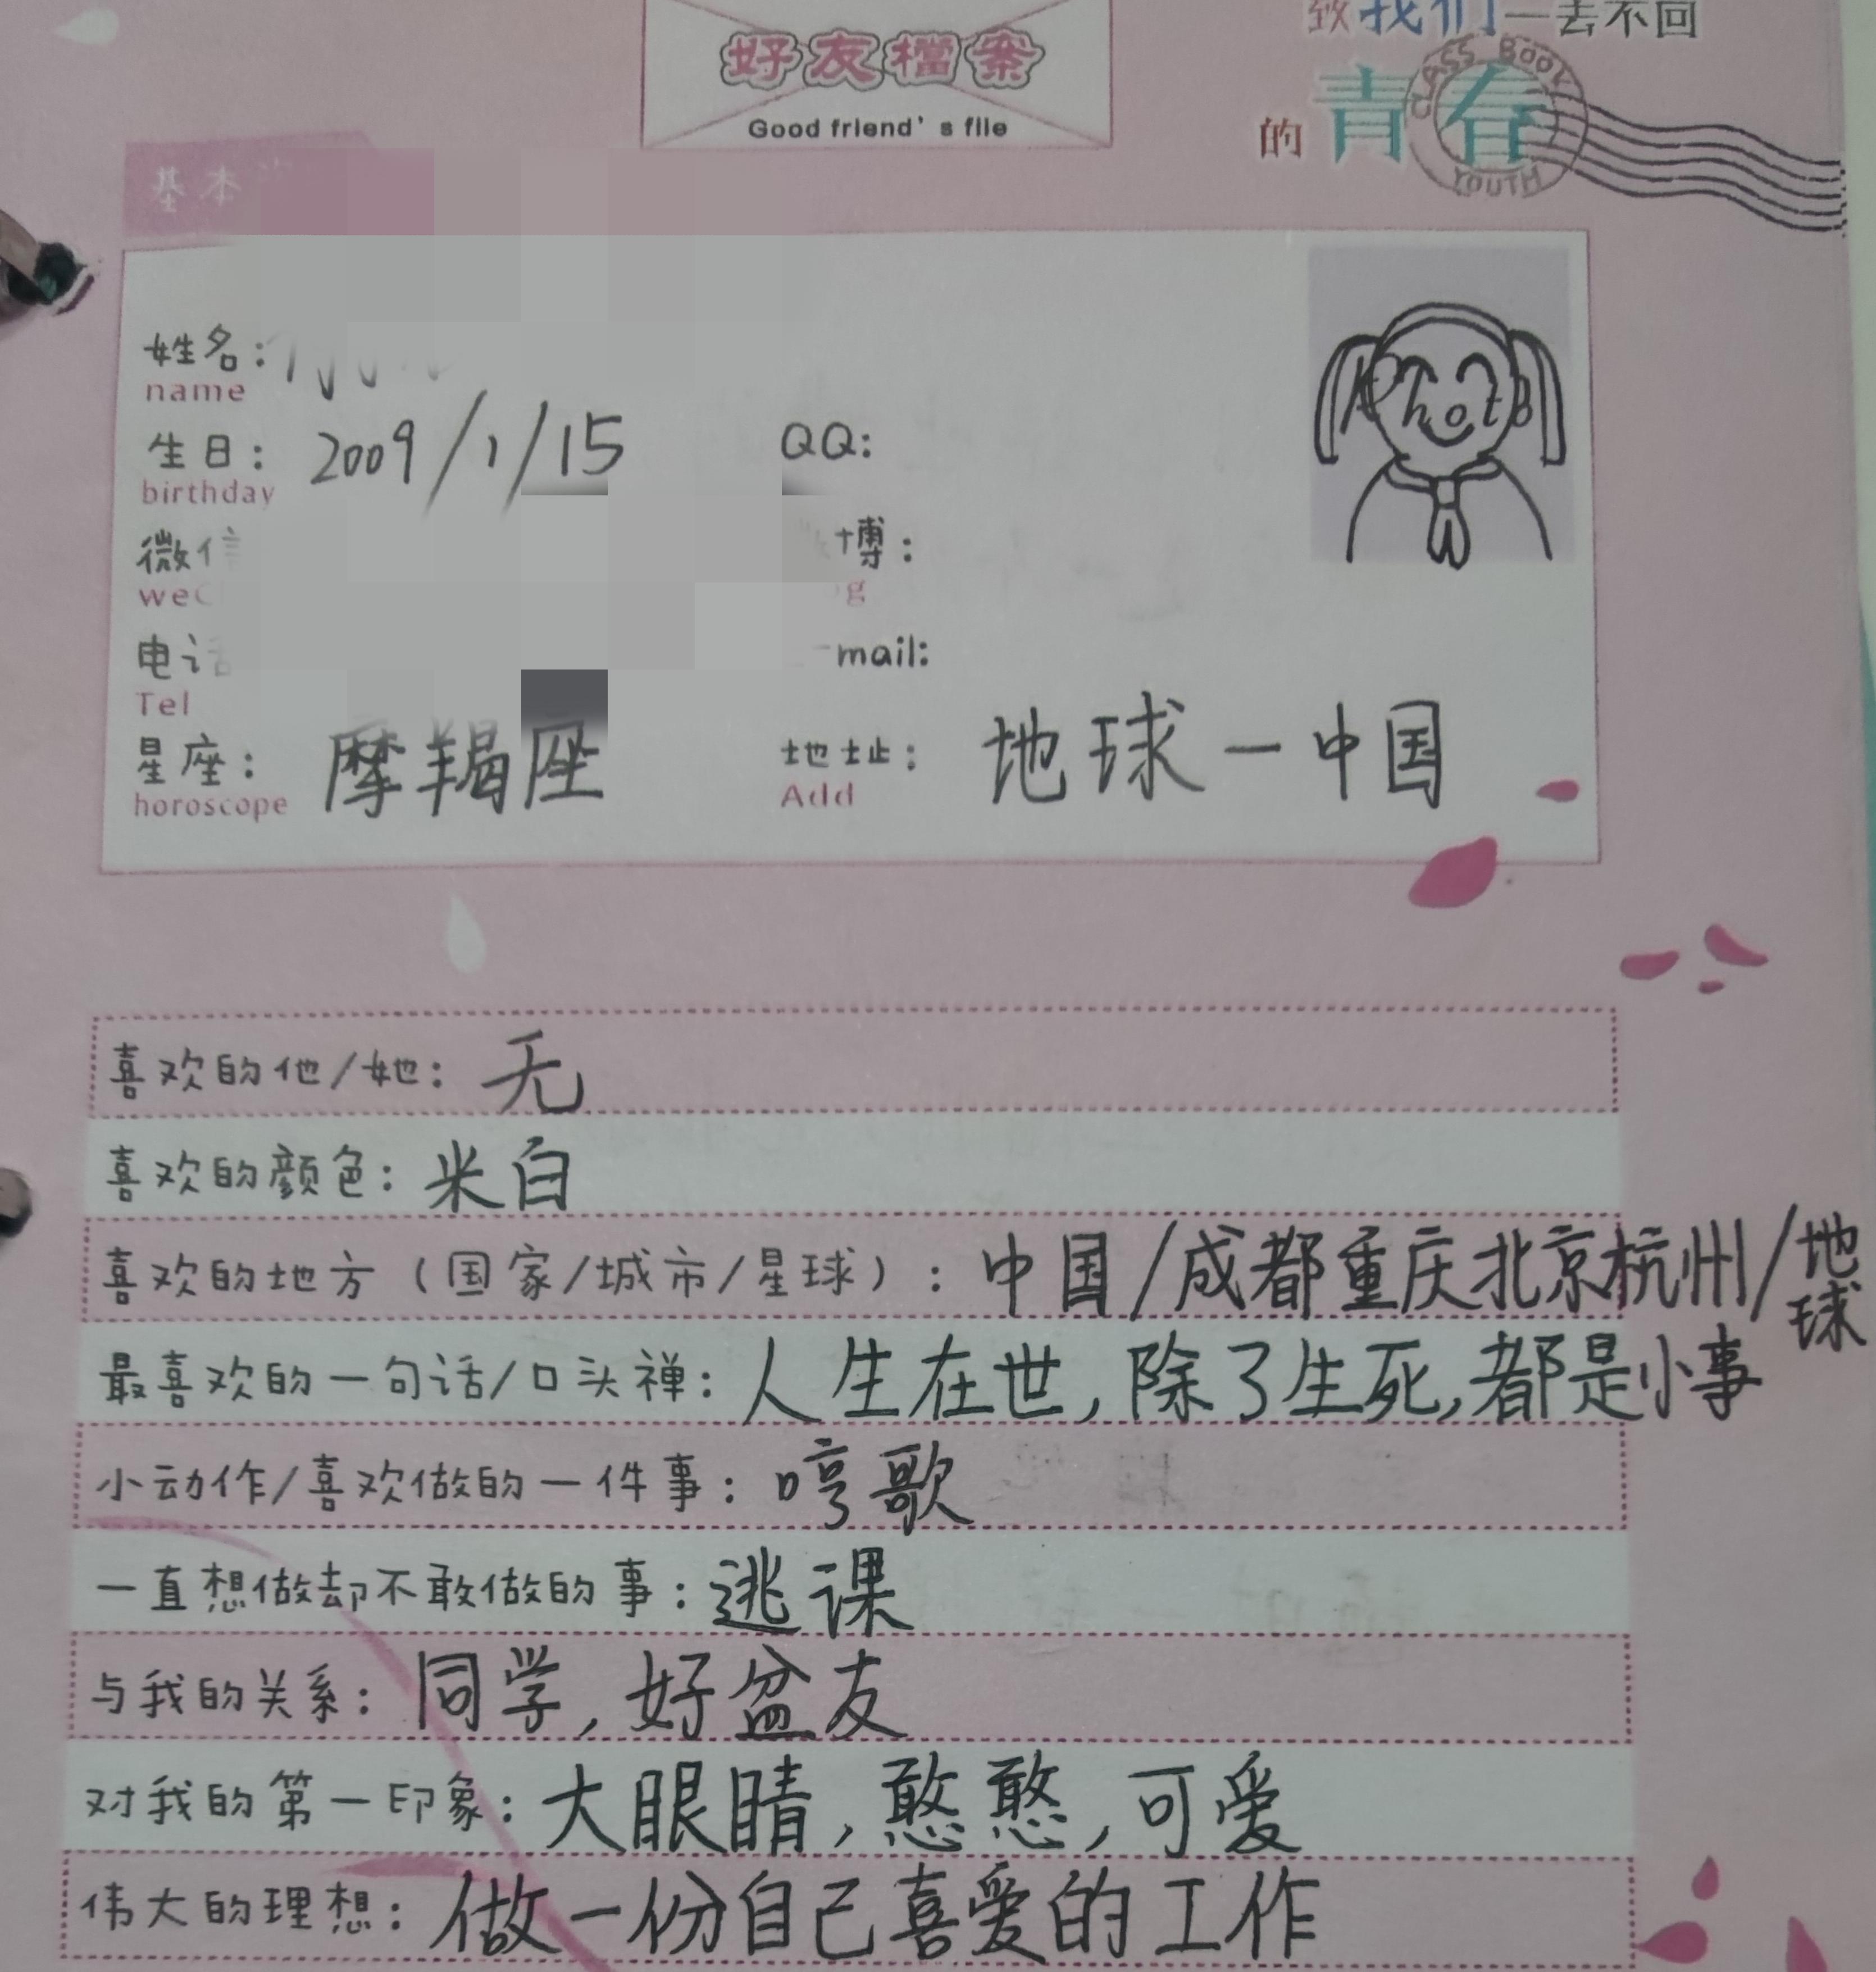 致我们一去不回
好友檔案
Good friend's file
的青春
CLASS BOOK
YOUTH
基本
姓名:
name
Photo
生日: 2009/1/15
birthday
QQ:
微信
博:
电话
Tel
mail:
星座: 摩羯座
horoscope
地址: 地球-中国
Add
喜欢的他/她: 无
喜欢的颜色: 米白
喜欢的地方(国家/城市/星球): 中国/成都重庆北京杭州/地球
最喜欢的一句话/口头禅: 人生在世,除了生死,都是小事
小动作/喜欢做的一件事: 哼歌
一直想做却不敢做的事: 逃课
与我的关系: 同学,好盆友
对我的第一印象: 大眼睛,憨憨,可爱
伟大的理想: 做一份自己喜爱的工作